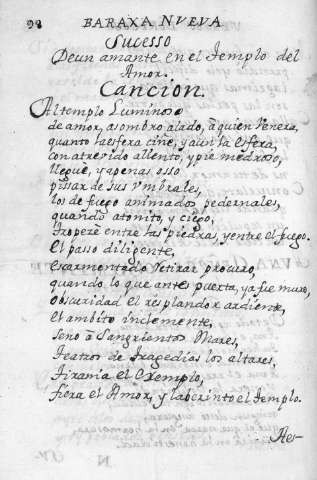 98 BARAXA NVEVA
Sucesso
De un amante en el Templo del
Amor.
Cancion.
Al templo Luminoso
de amor, asombro alado, â quien Venera,
quanto la esfera ciñe, y aun la esfera,
con atrevido aliento, y pie medroso,
lleguè, y apenas osso
pissar de sus vmbrales,
los de fuego animados pedernales,
quando atonito, y ciego,
tropezè entre las piedras, y entre el fuego.
el passo diligente,
escarmentado retirar procuro,
quando lo que antes puerta, ya fue muro,
obscuridad el resplandor ardiente,
el ambito inclemente,
seno â sangrientos Mares,
Teatros de tragedias los altares,
Tirania el exemplo,
fiera el Amor, y laberinto el templo.